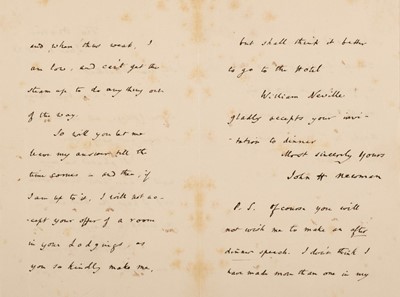 and when this went, I
am low, and can't get the
steam up to do any thing out
of the way.
So will you let me
leave my answer till the
time comes – and then, if
I am up to it, I will not ac-
cept your offer of a room
in your Lodgings, as
you so kindly make me,
but shall think it better
to go to the Hotel
William Neville
gladly accepts your invi-
-tation to dinner
Most sincerely Yours
John H Newman
P. S. Of course you will
not wish me to make an after
dinner speech. I don't think I
have made more than one in my